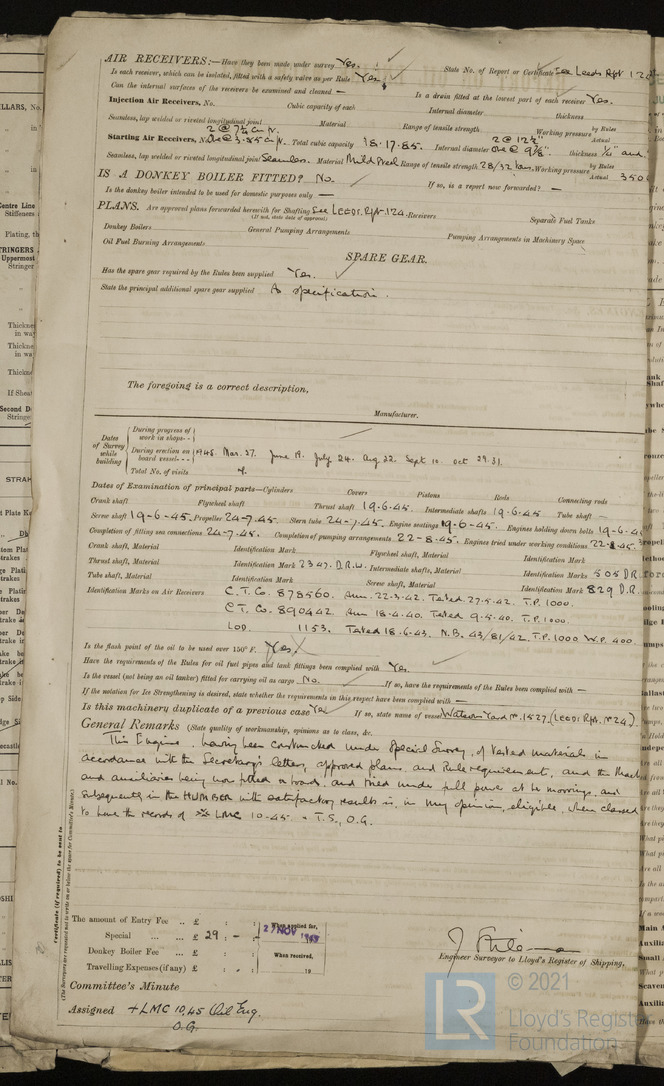 AIR RECEIVERS:—Have they been made under survey Yes. State No. of Report or Certificate See Leeds Rpt 12
Is each receiver, which can be isolated, fitted with a safety valve as per Rule Yes
Can the internal surfaces of the receivers be examined and cleaned — Is a drain fitted at the lowest part of each receiver Yes.
Injection Air Receivers, No. Cubic capacity of each Internal diameter thickness
Seamless, lap welded or riveted longitudinal joint Material Range of tensile strength Working pressure by Rules Actual
Starting Air Receivers, No. Total cubic capacity 18.17.85. Internal diameter 2 @ 12¾" One @ 9⅝" thickness and
Seamless, lap welded or riveted longitudinal joint Seamless. Material Mild Steel Range of tensile strength 28/32 tons. Working pressure by Rules Actual 350
IS A DONKEY BOILER FITTED? No. If so, is a report now forwarded? —
Is the donkey boiler intended to be used for domestic purposes only —
PLANS. Are approved plans forwarded herewith for Shafting See Leeds. Rpt. 124. Receivers Separate Fuel Tanks
(If not, state date of approval)
Donkey Boilers General Pumping Arrangements Pumping Arrangements in Machinery Space
Oil Fuel Burning Arrangements
SPARE GEAR.
Has the spare gear required by the Rules been supplied Yes.
State the principal additional spare gear supplied As specification.
The foregoing is a correct description,
Manufacturer.
Dates of Survey while building
During progress of work in shops--
During erection on board vessel--- 1945. Mar. 27. June 19. July 24. Aug 22. Sept 10. Oct 29.31.
Total No. of visits
Dates of Examination of principal parts—Cylinders Covers Pistons Rods Connecting rods
Crank shaft Flywheel shaft Thrust shaft 19.6.45. Intermediate shafts 19.6.45. Tube shaft
Screw shaft 19-6-45. Propeller 24-7.45. Stern tube 24-7.45. Engine seatings 19-6-45. Engines holding down bolts 19.6.4
Completion of fitting sea connections 24-7.45. Completion of pumping arrangements 22-8-45. Engines tried under working conditions 22.8.45.
Crank shaft, Material Identification Mark Flywheel shaft, Material Identification Mark
Thrust shaft, Material Identification Mark 2347. D.R.W. Intermediate shafts, Material Identification Marks 505 D.R.
Tube shaft, Material Identification Mark Screw shaft, Material Identification Mark 829 D.R.
Identification Marks on Air Receivers C.T. Co. 878560. Ann. 22-3-42. Tested 27.5-42. T.P. 1000.
C.T. Co. 890442. Ann 18-4.40. Tested 9-5.40. T.P. 1000.
LOD. 1153. Tested 18-6.43. N.B. 43/81/42. T.P. 1000 W.P. 400.
Is the flash point of the oil to be used over 150° F. Yes.
Have the requirements of the Rules for oil fuel pipes and tank fittings been complied with Yes.
Is the vessel (not being an oil tanker) fitted for carrying oil as cargo No. If so, have the requirements of the Rules been complied with —
If the notation for Ice Strengthening is desired, state whether the requirements in this respect have been complied with —
Is this machinery duplicate of a previous case Yes If so, state name of vessel Watson Yard No. 1527 (LEEDS Rpt. No 24).
General Remarks (State quality of workmanship, opinions as to class, &c.
This Engine, having been constructed under Special Survey, of tested materials in
accordance with the Secretary's letters, approved plans and Rule requirements, and the Mach
and auxiliaries being now fitted aboard and tried under full power at the moorings, and
subsequently in the HUMBER with satisfactory results is, in my opinion, eligible, when classed
to have the records of LMC 10-45. T.S., O.G.
Certificate (if required) to be sent to
(The Surveyors are requested not to write on or below the space for Committee's Minute.)
The amount of Entry Fee .. £ : :
Special ... ... £ 29 : - : -
Donkey Boiler Fee ... £ : :
Travelling Expenses (if any) £ : :
When applied for,
27 NOV 1945
When received,
19
Engineer Surveyor to Lloyd's Register of Shipping.
Committee's Minute
Assigned +LMC 10,45 Oil Eng.
O.G.
© 2021
LR Lloyd's Regist
Foundation